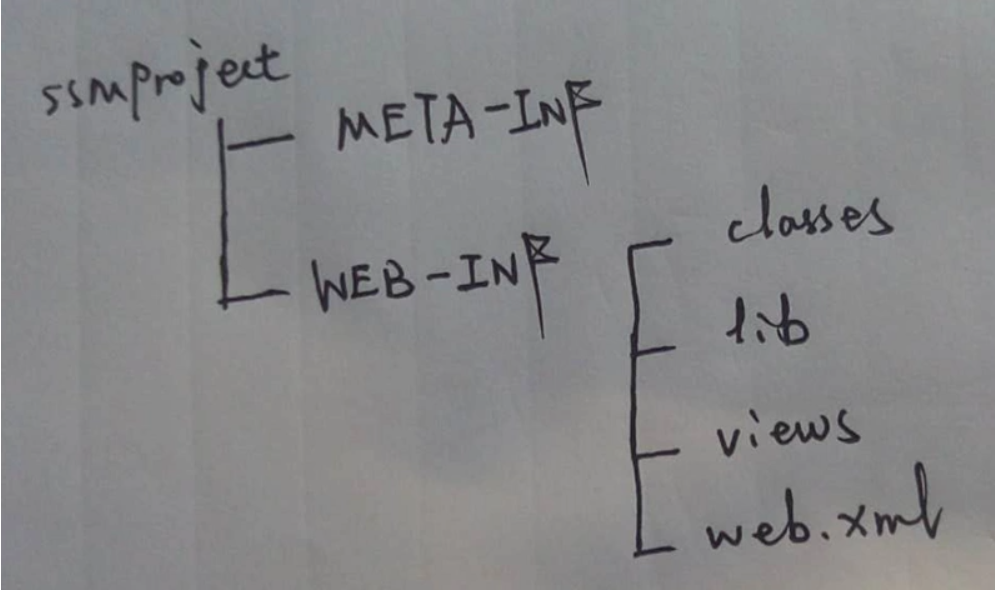 ssmproject
META-INF
WEB-INF
classes
lib
views
web.xml